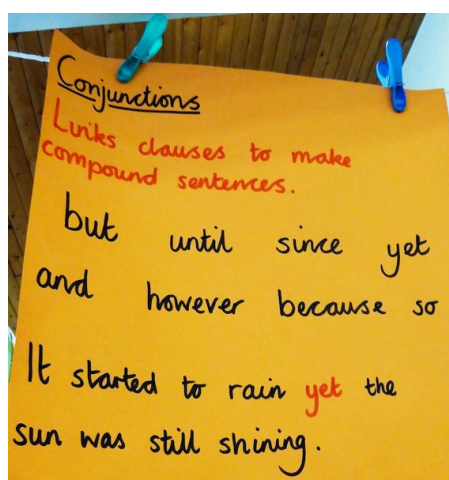 Conjunctions
Links clauses to make
compound sentences.
but until since yet
and however because so
It started to rain yet the
sun was still shining.